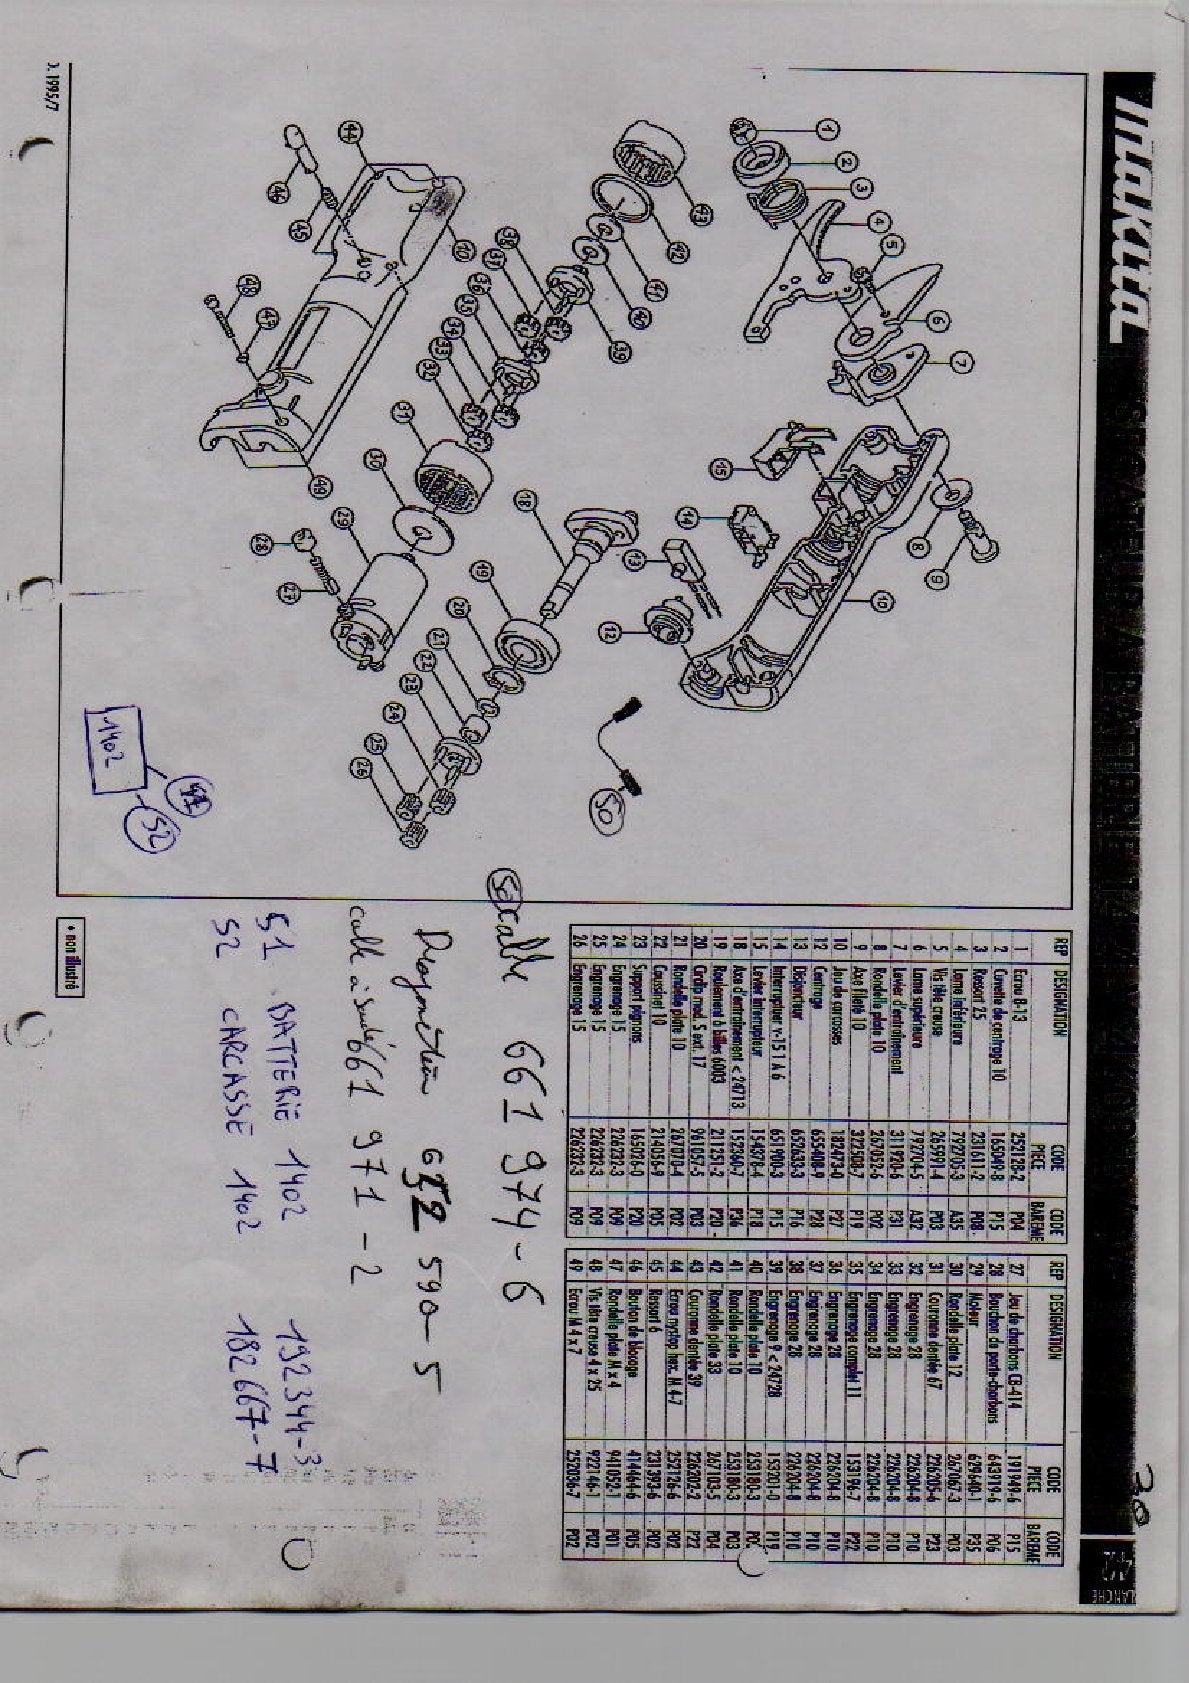 makita
SECATEUR A BATTERIE
30
42
PLANCHE
1
2
3
4
5
6
7
8
9
10
12
13
14
15
18
19
20
21
22
23
24
25
26
27
28
29
30
31
32
33
34
35
36
37
38
39
40
41
42
43
44
45
46
10
48
47
49
50
1402
51
52
REP DESIGNATION CODE PIECE CODE BAREME
1 Ecrou 8-13 252128-2 P04
2 Cuvette de centrage 10 165049-8 P15
3 Ressort 25 231611-2 P08
4 Lame inférieure 792705-3 A35
5 Vis tête creuse 265991-4 P02
6 Lame supérieure 792704-5 A32
7 Levier d'entraînement 311920-6 P31
8 Rondelle plate 10 267052-6 P02
9 Axe fileté 10 322508-7 P19
10 Jeu de carcasses 182473-0 P27
12 Centrage 655408-9 P28
13 Disjoncteur 652633-3 P16
14 Interrupteur 651900-3 P15
15 Levier interrupteur 154378-4 P18
18 Axe d'entraînement < 24713 152360-7 P36
19 Roulement à billes 6003 211251-2 P20
20 Circlip mod. S ext. 17 961057-5 P03
21 Rondelle plate 10 267070-4 P02
22 Coussinet 10 214056-9 P05
23 Support pignons 165026-0 P20
24 Engrenage 15 226232-3 P09
25 Engrenage 15 226232-3 P09
26 Engrenage 15 226232-3 P09
REP DESIGNATION CODE PIECE CODE BAREME
27 Jeu de charbons CB-414 191949-6 P15
28 Bouchon de porte-charbons 643919-6 P06
29 Moteur 629640-1 P35
30 Rondelle plate 12 267067-3 P03
31 Couronne dentée 67 226205-6 P23
32 Engrenage 28 226204-8 P10
33 Engrenage 28 226204-8 P10
34 Engrenage 28 226204-8 P10
35 Engrenage complet 11 153196-7 P22
36 Engrenage 28 226204-8 P10
37 Engrenage 28 226204-8 P10
38 Engrenage 28 226204-8 P10
39 Engrenage 9 < 24728 153201-0 P19
40 Rondelle plate 10 253180-3
41 Rondelle plate 10 253180-3 P03
42 Rondelle plate 33 267103-5 P04
43 Couronne dentée 39 226202-2 P22
44 Ecrou nylstop hex. M 4-7 252126-6 P02
45 Ressort 6 231393-6 P02
46 Bouton de blocage 414464-6 P05
47 Rondelle plate M x 4 941052-1 P01
48 Vis tête creuse 4 x 25 922146-1 P02
49 Ecrou M 4 x 7 252036-7 P02
50 cable 661 974-6
590-5
cable à 661 971-2
51 BATTERIE 1402 192344-3
52 CARCASSE 1402 182667-7
* non illustré
D. 1995/7